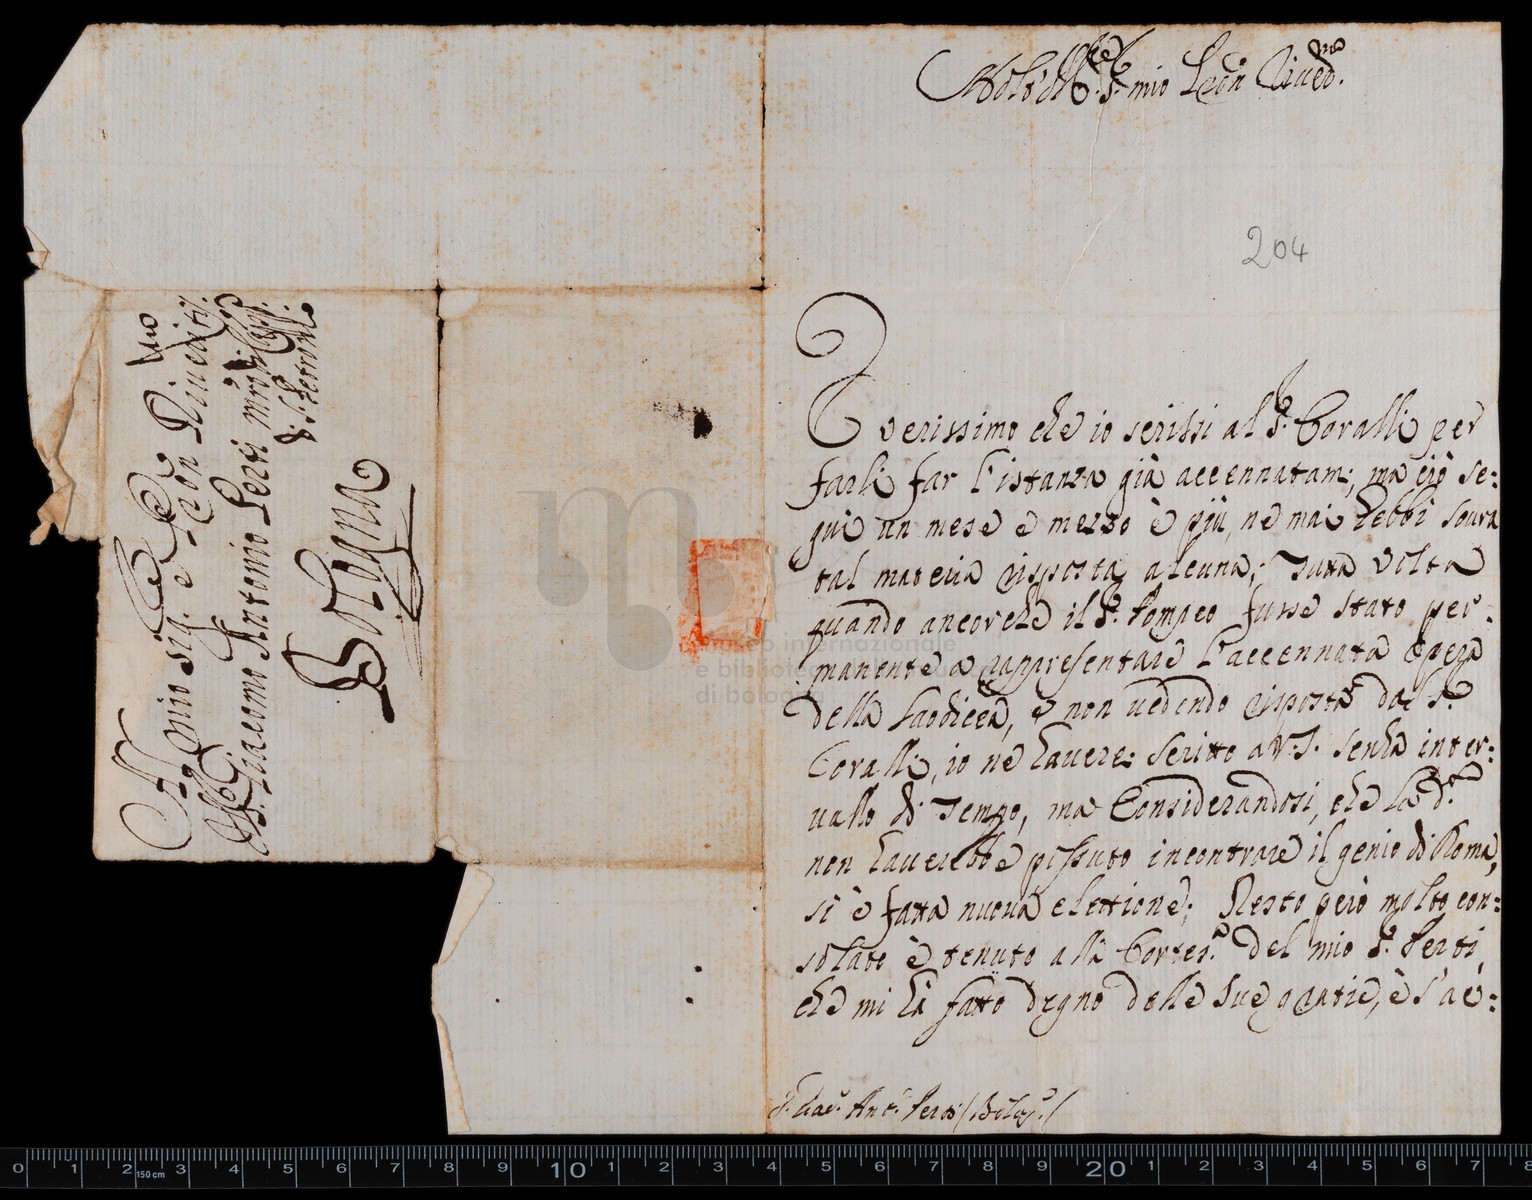 Molto Ill.re S.r mio P.ron River.mo
204
È verissimo che io scrissi al S.r Coralli per
farli far l'istanza già accennatam:, ma ciò se:
guì un mese e mezzo è più, ne mai hebbi soura
tal materia risposta alcuna; Tutta volta
quando ancorche il S.r Pompeo fusse stato per:
manente a rappresentare l'accennata opera
della Laodicea, e non vedendo risposta dal S.r
Coralli, io ne havere: scritto a V.S. senza inter:
vallo di Tempo, ma Considerandosi, che la d.a
non haverebbe possuto incontrare il genio di Roma,
si è fatta nuova elettione; Resto però molto con:
solato è tenuto alla Cortes.a del mio S.r Perti,
che mi hà fatto degno delle sue gratie, è s'ac:
S. Giac.o Ant.o Perti (Bolog.a)
Al Molto Ill.re
mio Sig.r e P.ron River.mo
Il S. Giacomo Antonio Perti mro di Capp.
di S. Petronio
Bologna
museo internazionale
e biblioteca
di bologna
0 1 2 3 4 5 6 7 8 9 10 1 2 3 4 5 6 7 8 9 20 1 2 3 4 5 6 7 8
150 cm